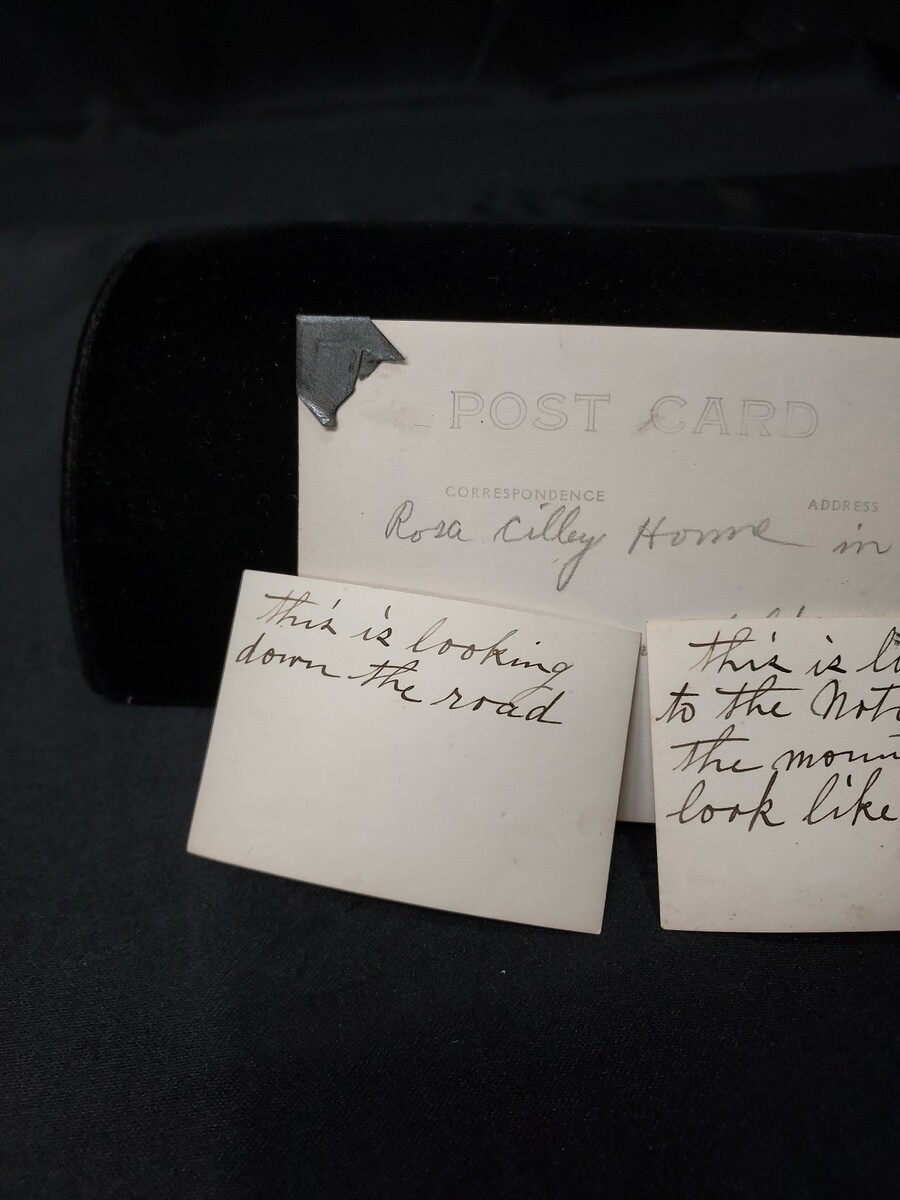 POST CARD
CORRESPONDENCE
ADDRESS
Rosa Cilley Home in
this is looking
down the road
this is
to the
the
look like